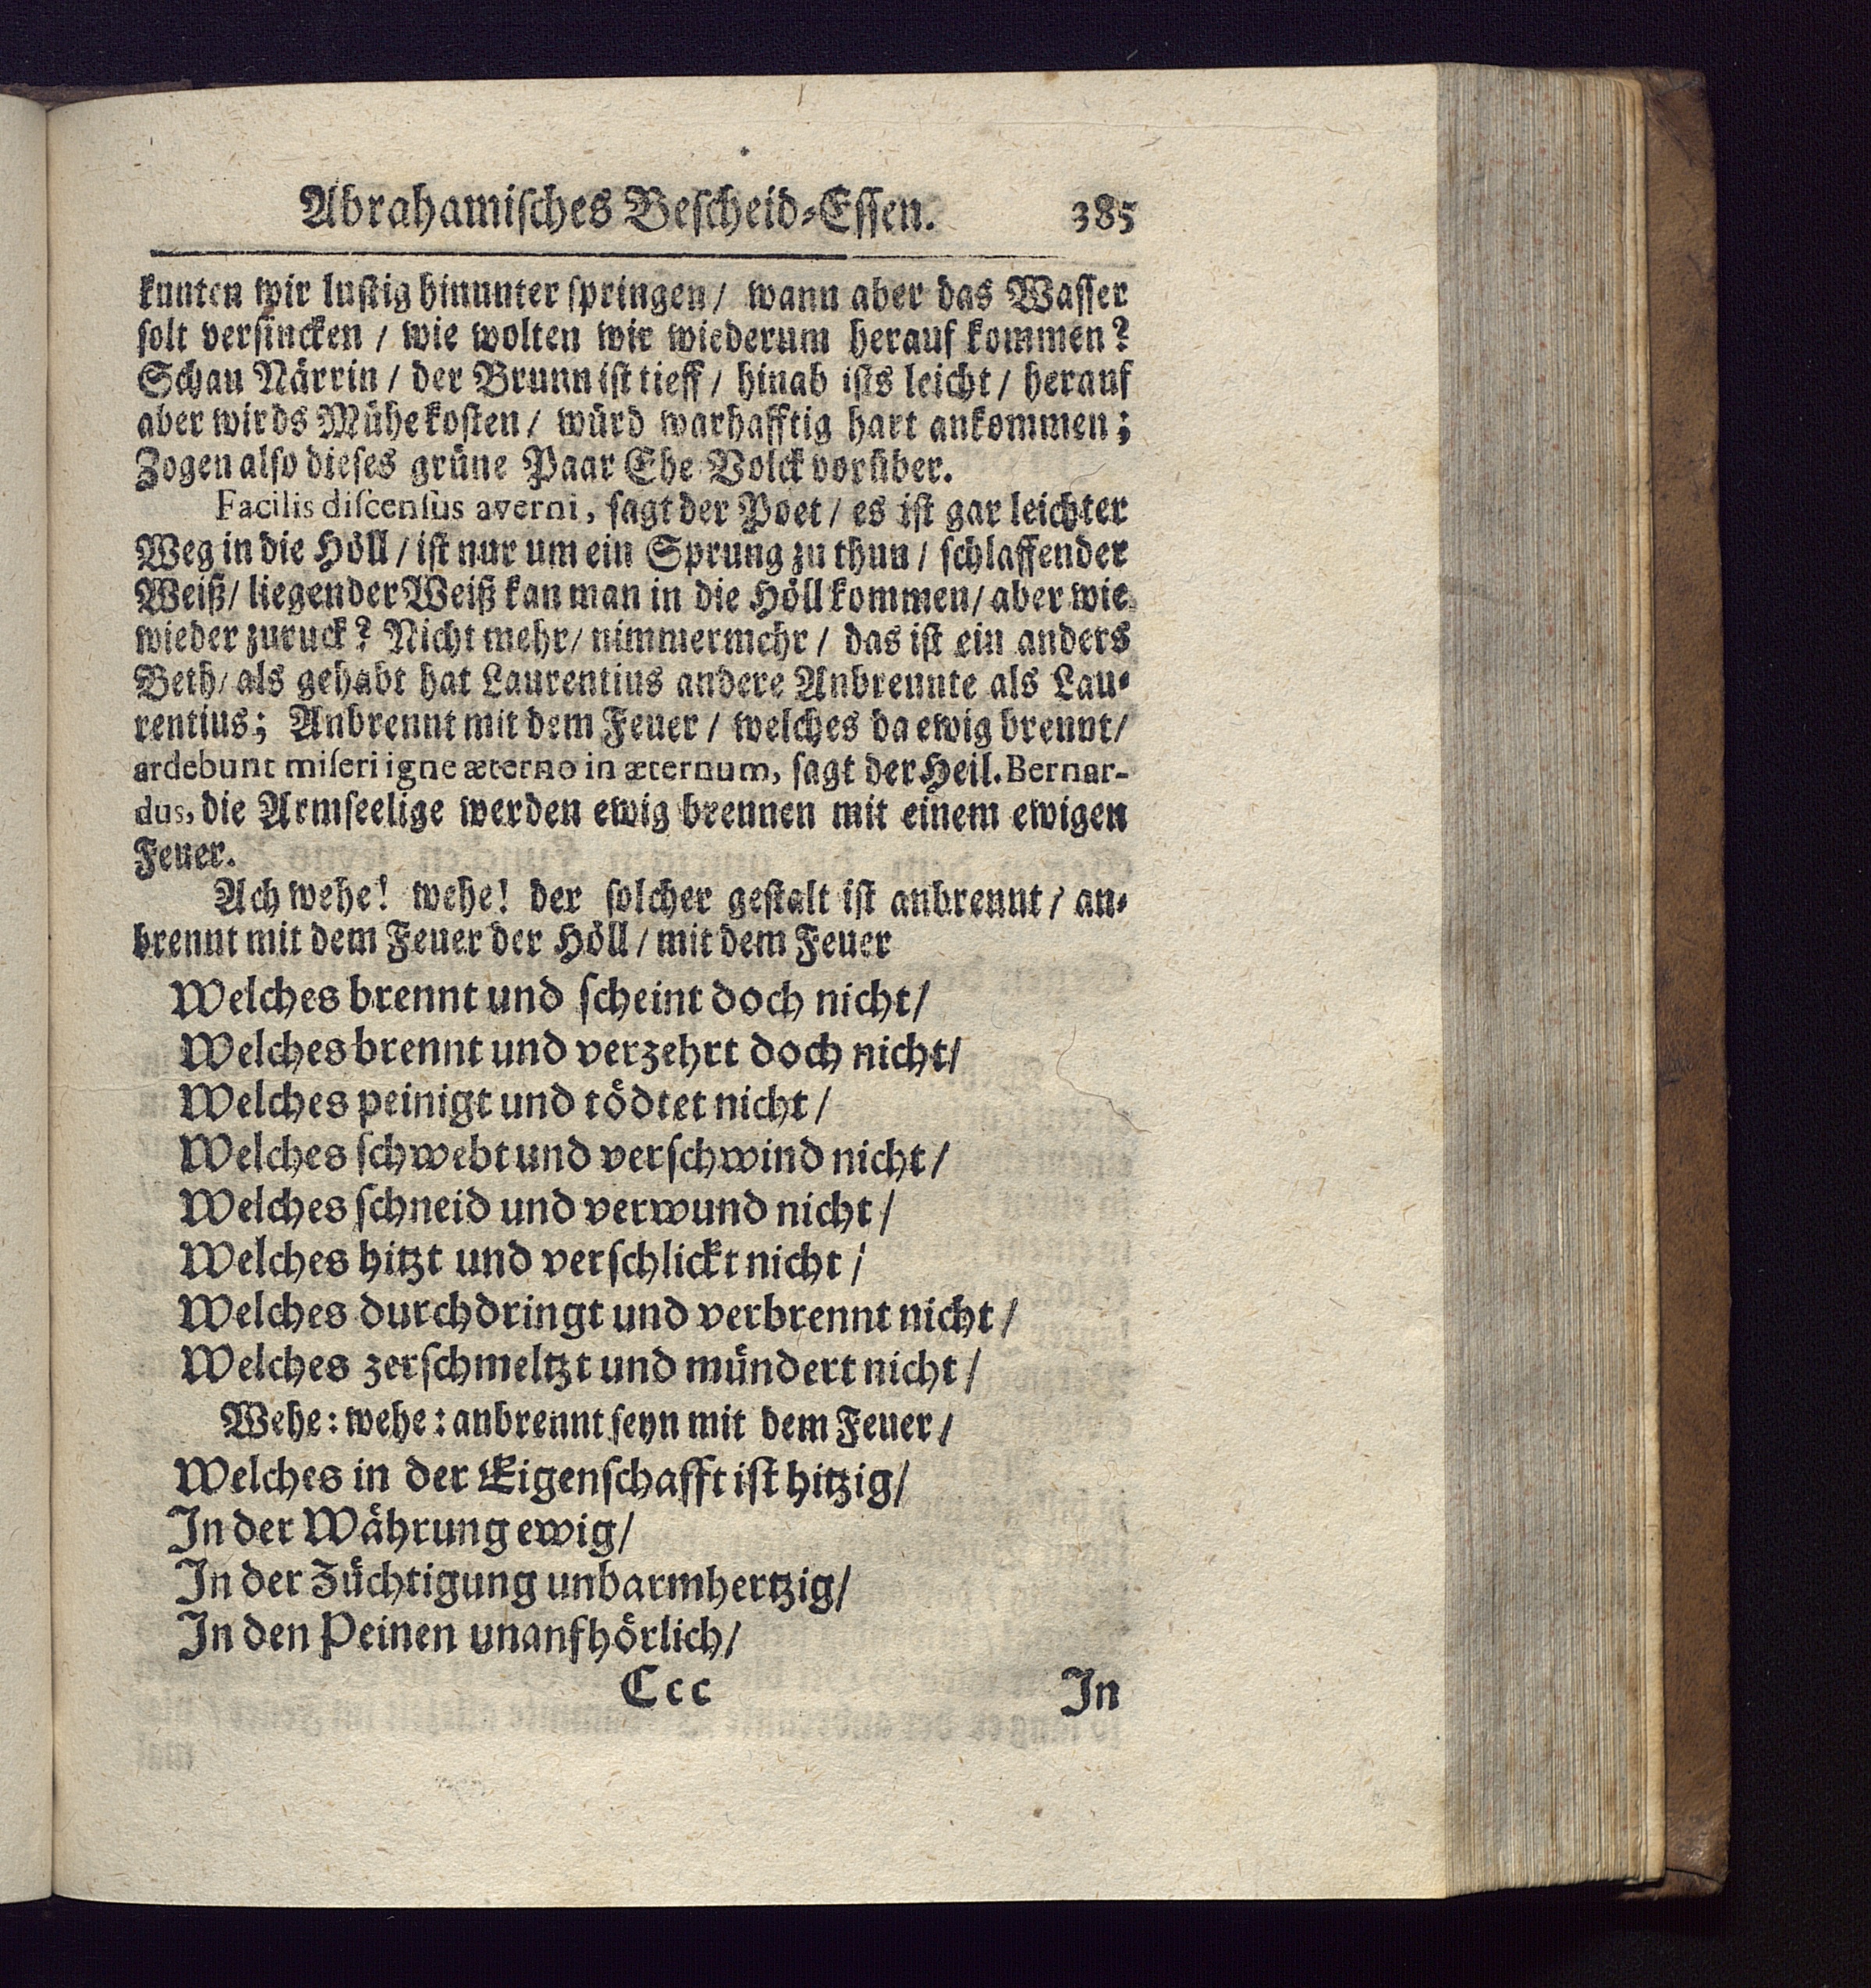 Abrahamisches Bescheid-Essen. 385
kunten wir lustig hinunter springen / wann aber das Wasser
solt versincken / wie wolten wir wiederum herauf kommen?
Schau Närrin / der Brunn ist tieff / hinab ists leicht / herauf
aber wirds Mühe kosten / würd warhafftig hart ankommen;
Zogen also dieses grüne Paar Ehe-Volck vorüber.
Facilis discensus averni, sagt der Poet / es ist gar leichter
Weg in die Höll / ist nur um ein Sprung zu thun / schlaffender
Weiß / liegender Weiß kan man in die Höll kommen / aber wie
wieder zuruck? Nicht mehr / nimmermehr / das ist ein anders
Beth / als gehabt hat Laurentius andere Anbrennte als Lau-
rentius; Anbrennt mit dem Feuer / welches da ewig brennt /
ardebunt miseri igne æterno in æternum, sagt der Heil. Bernar-
dus, die Armseelige werden ewig brennen mit einem ewigen
Feuer.
Ach wehe! wehe! der solcher gestalt ist anbrennt / an-
brennt mit dem Feuer der Höll / mit dem Feuer
Welches brennt und scheint doch nicht /
Welches brennt und verzehrt doch nicht /
Welches peinigt und tödtet nicht /
Welches schwebt und verschwind nicht /
Welches schneid und verwund nicht /
Welches hitzt und verschlickt nicht /
Welches durchdringt und verbrennt nicht /
Welches zerschmeltzt und mündert nicht /
Wehe: wehe: anbrennt seyn mit dem Feuer /
Welches in der Eigenschafft ist hitzig /
In der Währung ewig /
In der Züchtigung unbarmhertzig /
In den Peinen unanfhörlich /
Ccc In